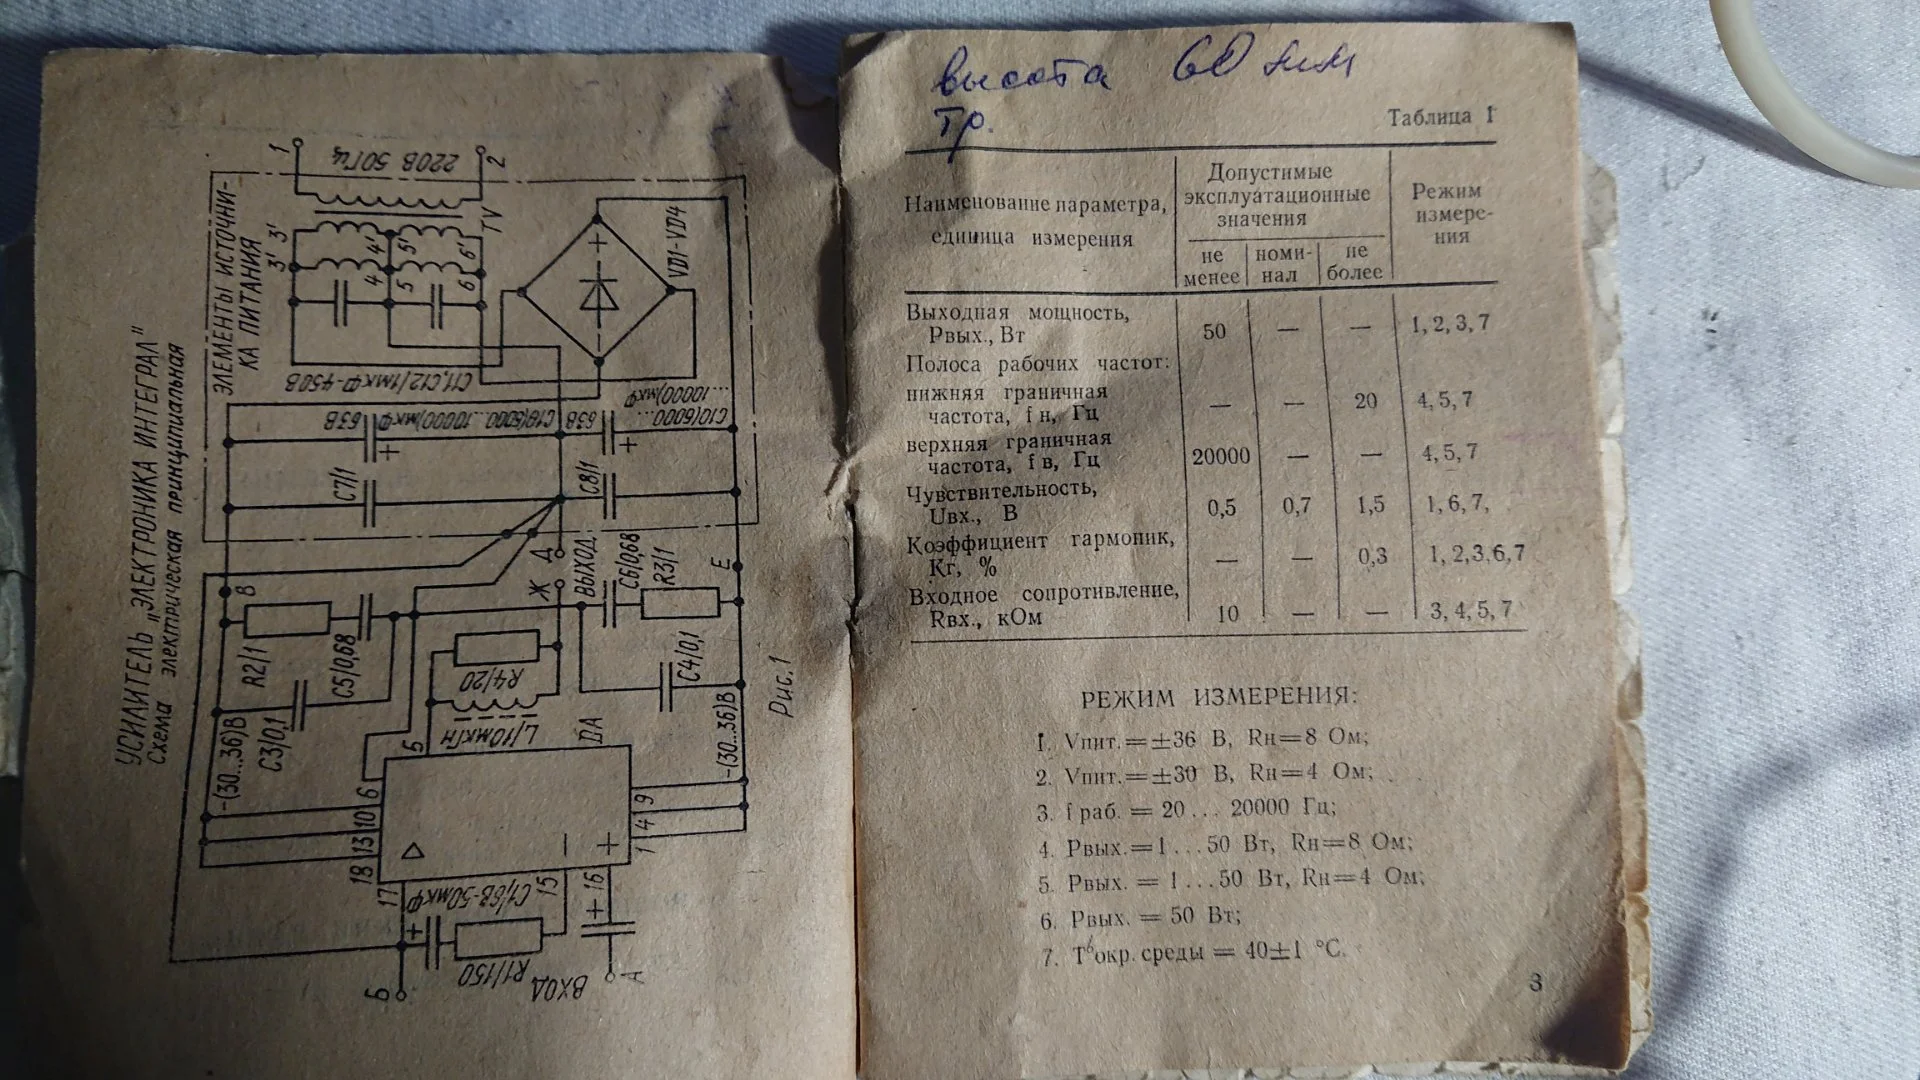 УСИЛИТЕЛЬ „ЭЛЕКТРОНИКА ИНТЕГРАЛ"
Схема электрическая принципиальная
ЭЛЕМЕНТЫ ИСТОЧНИ-
КА ПИТАНИЯ
1
220В 50Гц
2
TV
3' 3'
4 4'
5 5'
6 6'
VD1-VD4
С11,С12/1мкФ-450В
63В
С10(5000...10000)мкФ
63В
С10(5000...
...10000)мкФ
С7/1
С8/1
В
R2/1
С5/0,68
С3/0,1
-(30...36)В
Д
Ж
ВЫХОД
С6/0,68
R3/1
Е
R4/20
L/10мкГн
С4/0,1
-(30...36)В
DA
5
6
10
13
18
17
15
16
1
4
9
С1/6В-50мкФ
R1/150
Б
ВХОД
А
Рис.1
высота 60 мм
тр.
Таблица 1
Наименование параметра,
единица измерения
Допустимые
эксплуатационные
значения
Режим
измере-
ния
не
менее
номи-
нал
не
более
Выходная мощность,
Рвых., Вт 50 — — 1, 2, 3, 7
Полоса рабочих частот:
нижняя граничная
частота, f н, Гц — — 20 4, 5, 7
верхняя граничная
частота, f в, Гц 20000 — — 4, 5, 7
Чувствительность,
Uвх., В 0,5 0,7 1,5 1, 6, 7,
Коэффициент гармоник,
Кг, % — — 0,3 1, 2,3,6,7
Входное сопротивление,
Rвх., кОм 10 — — 3, 4, 5, 7
РЕЖИМ ИЗМЕРЕНИЯ:
1. Vпит.=±36 В, Rн=8 Ом;
2. Vпит.=±30 В, Rн=4 Ом;
3. f раб. = 20... 20000 Гц;
4. Рвых.=1...50 Вт, Rн=8 Ом;
5. Рвых. = 1...50 Вт, Rн=4 Ом;
6. Рвых. = 50 Вт;
7. Т окр. среды = 40±1 °С.
3